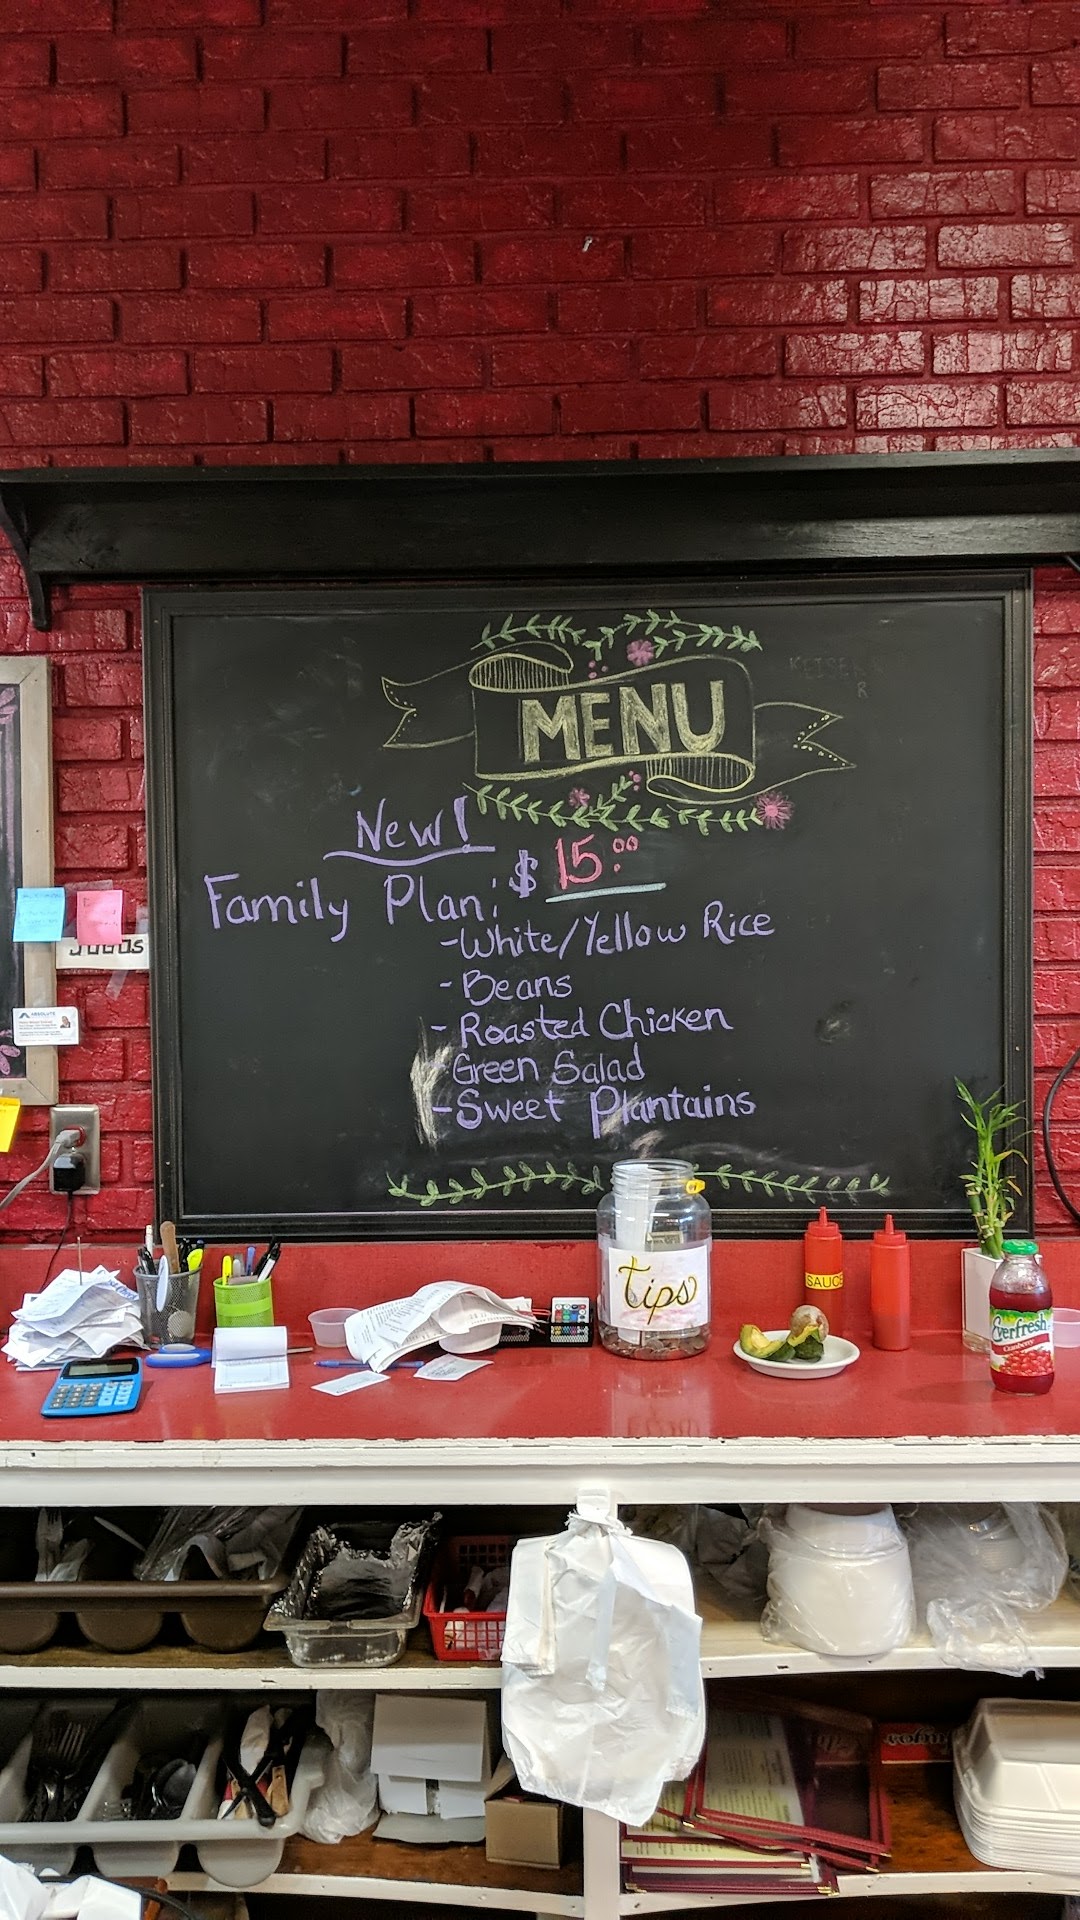 MENU
New!
Family Plan: $ 15.00
-White/Yellow Rice
-Beans
-Roasted Chicken
-Green Salad
-Sweet Plantains
JUGOS
ABSOLUTE
tips
SAUCE
Everfresh
Cranberry